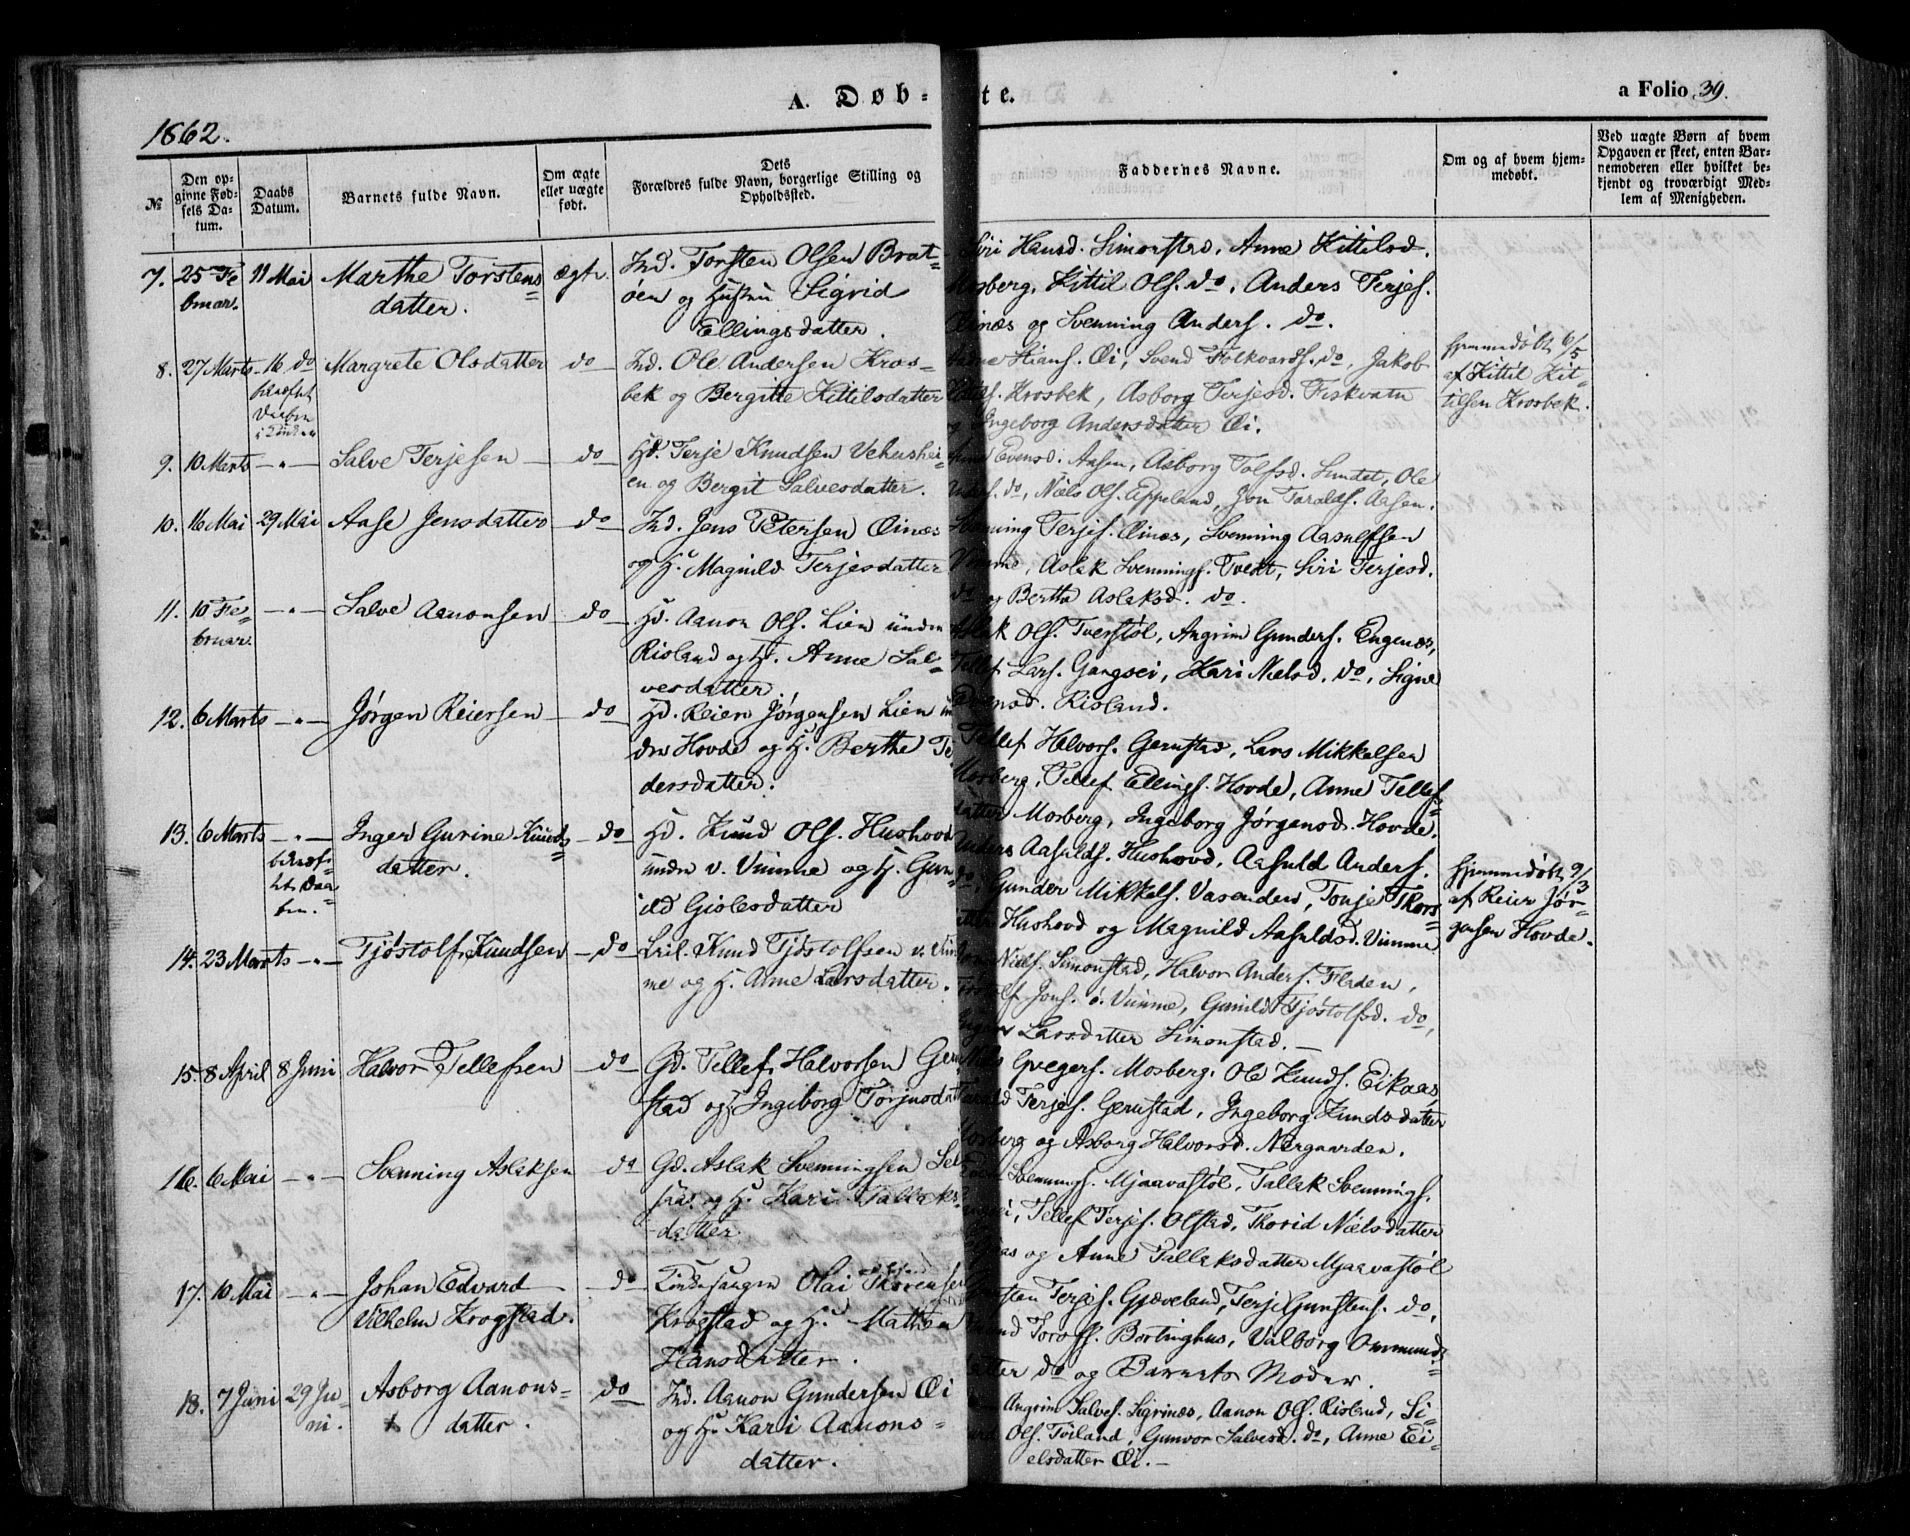 A. Døb-te.
a Folio 39.
1862.
№
Den op-
givne Fød-
sels Da-
tum.
Daabs
Datum.
Barnets fulde Navn.
Om ægte
eller uægte
født.
Dets
Forældres fulde Navn, borgerlige Stilling og
Opholdssted.
Faddernes Navne.
Om og af hvem hjem-
medøbt.
Ved uægte Børn af hvem
Opgaven er skeet, enten Bar-
nemoderen eller hvilket be-
kjendt og troværdigt Med-
lem af Menigheden.
7. 25 Fe
bruar.
11 Mai
Marthe Torstens=
datter.
ægte
Ind. Torsten Olsen Brat=
øen og Hustru Sigrid
Ellingsdatter.
Siri Hansd. Simonstad. Anne Kittilsd.
Mosberg, Kittil Ols. do, Anders Terjes.
Øinæs og Svenning Anders. do.
8. 27 Marts
16 do
bekræftet
Daaben
Margrete Olsdatter
do
Ind. Ole Andersen Kros-
bek og Bergitte Kittilsdatter
Stians. Øi, Svend Folkvards. do, Jakob
Kittils. Krosbek, Asborg Terjesd. Fiskvatn
og Ingeborg Andersdatter Øi.
Hjemmedøbt 6/5
af Kittil Kit-
tilsen Krosbek.
9. 10 Marts
-"-
Salve Terjesen
do
Hd. Terje Knudsen Vehushei-
en og Bergit Salvesdatter.
Evensd. Aasen, Asborg Tolfsd. Sundet, Ole
Anders. do, Niels Ols. Eppeland, Jon Tarolds. Aasen.
10. 16 Mai
29 Mai
Aase Jensdatter
do
Ind. Jens Petersen Øinæs
og H. Magnild Terjesdatter
Svenning Terjes. Øinæs, Svenning Aasulfsen
Vimme, Aslak Svennings. Tvedt, Siri Terjesd.
do og Bertha Aslaksd. do.
11. 10 Fe=
bruar.
-"-
Salve Aanonsen
do
Hd. Aanon Ols. Lien under
Risland og H. Anne Sal=
vesdatter
Aslak Ols. Tverstøl, Angrim Gunders. Engenæs,
Tellef Lars. Gangsei, Kari Nielsd. do, Signe
Risland.
12. 6 Marts
-"-
Jørgen Reiersen
do
Hd. Reier Jørgensen Lien un
der Hovde og H. Berthe Te
dersdatter.
Tellef Halvors. Gerustad, Lars Mikkelsen
Mosberg, Tellef Ellings. Hovde, Anne Tellefs=
datter Mosberg, Ingeborg Jørgensd. Hovde.
13. 6 Marts
-"-
bekræf-
tet Daa
ben.
Inger Gurine Knuds=
datter.
do
Hd. Knud Ols. Hushovd
under v. Vimme og H. Gun=
ild Giølesdatter
Anders Aasulds. Hushovd, Aasuld Anders.
do, Gunder Mikkels. Vasenden, Tonje Thors=
datter Hushovd og Magnild Aasuldsd. Vimme
Hjemmedøbt 9/3
af Reier Jør-
gensen Hovde.
14. 23 Marts
-"-
Tjøstolf Knudsen
do
Knud Tjøstolfsen v. Vim
me og H. Anne Larsdatter.
Niels. Simonstad, Halvor Anders. Fladen,
Jons. ø. Vimme, Gunild Tjøstolfsd. do,
Larsdatter Simonstad.
15. 8 April
8 Juni
Halvor Tellefsen
do
Gd. Tellef Halvorsen Geru
stad og H. Ingeborg Torjusdat
Gregers. Mosberg. Ole Knuds. Eikaas,
Terjes. Gerustad, Ingeborg Knudsdatter
Mosberg og Asborg Halvorsd. Nærgaarden.
16. 6 Mai
-"-
Svenning Aslaksen
do
Gd. Aslak Svenningsen Sel
og H. Kari Tallaks
datter
Svennings. Mjaavastøl, Tallak Svennings.
Tellef Terjes. Olstad, Thorid Nielsdatter
og Anne Tallaksdatter Mjaavastøl
17. 10 Mai
-"-
Johan Edvard
Vilhelm Krogstad.
do
Kirkesanger Olai Thorensen
Krogstad og H. Mathea
Hansdatter.
Terjes. Gjæveland, Terje Gunstens. do,
Torass. Bortinghus, Valborg Ommunds
datter do og Barnets Moder.
18. 7 Juni
29 Ju=
ni.
Asborg Aanons=
datter.
do
Ind. Aanon Gundersen Øi
og H. Kari Aanons=
datter.
Angrim Salves. Sigrinæs, Aanon Ols. Risland, Si-
Ols. Tøiland, Gunvor Salvesd. do, Anne Ei-
elsdatter Øi.